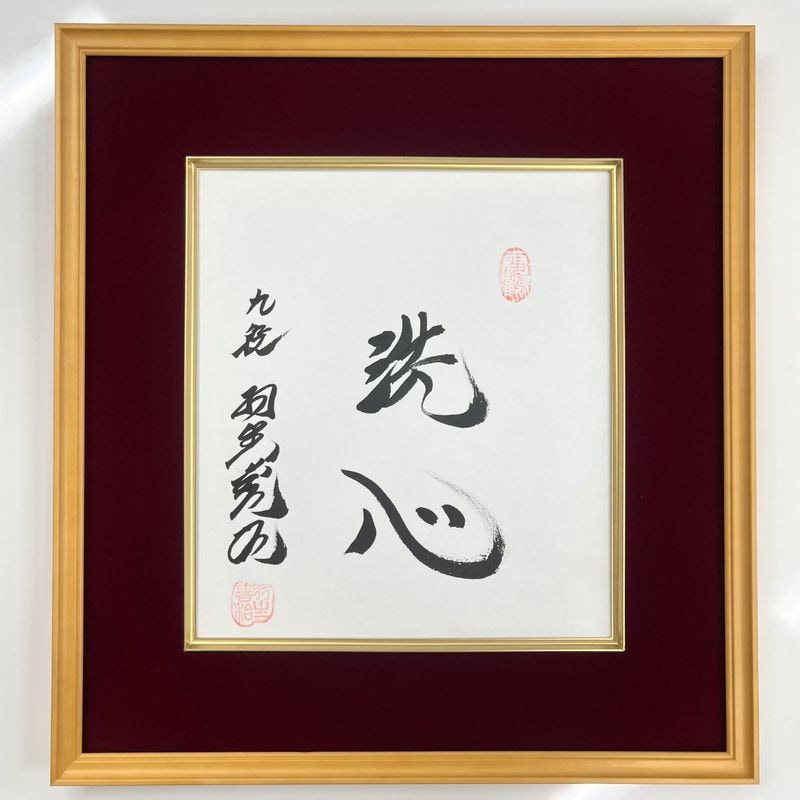 洗心
九段 羽生善治
羽生善治